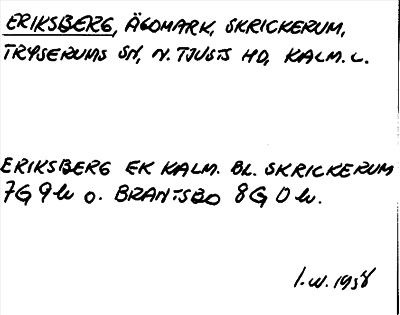 ERIKSBERG, ÄGOMARK, SKRICKERUM,
TRYSERUMS SN, N. TJUSTS HD, KALM. L.
ERIKSBERG EK KALM. BL. SKRICKERUM
7G 9h O. BRANTSBO 8G 0h.
I.W. 1958